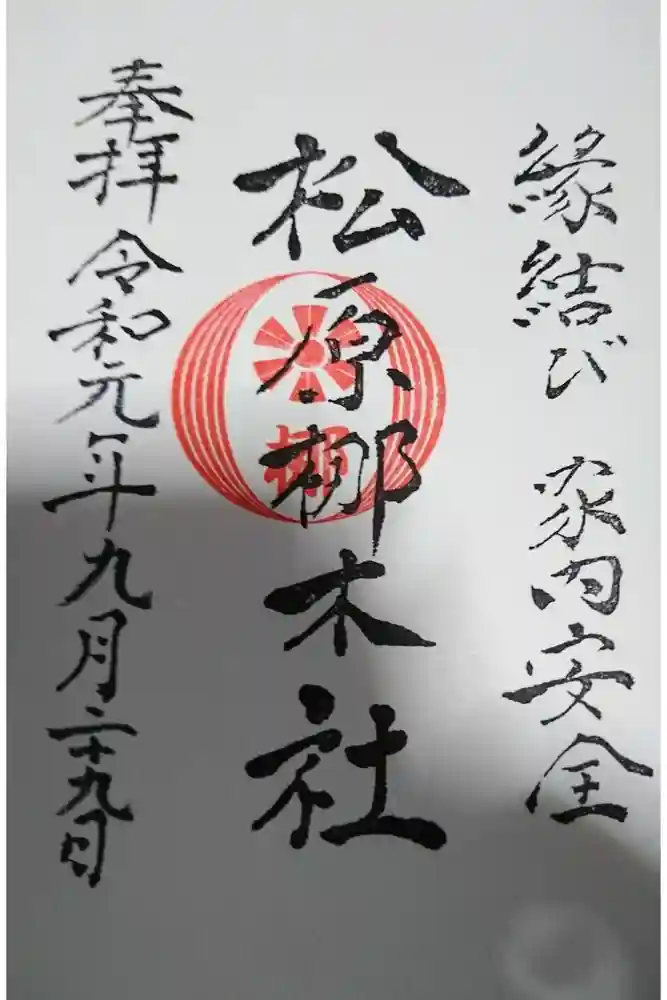 縁結び 家内安全
松原梛木社
奉拝 令和元年九月二十九日